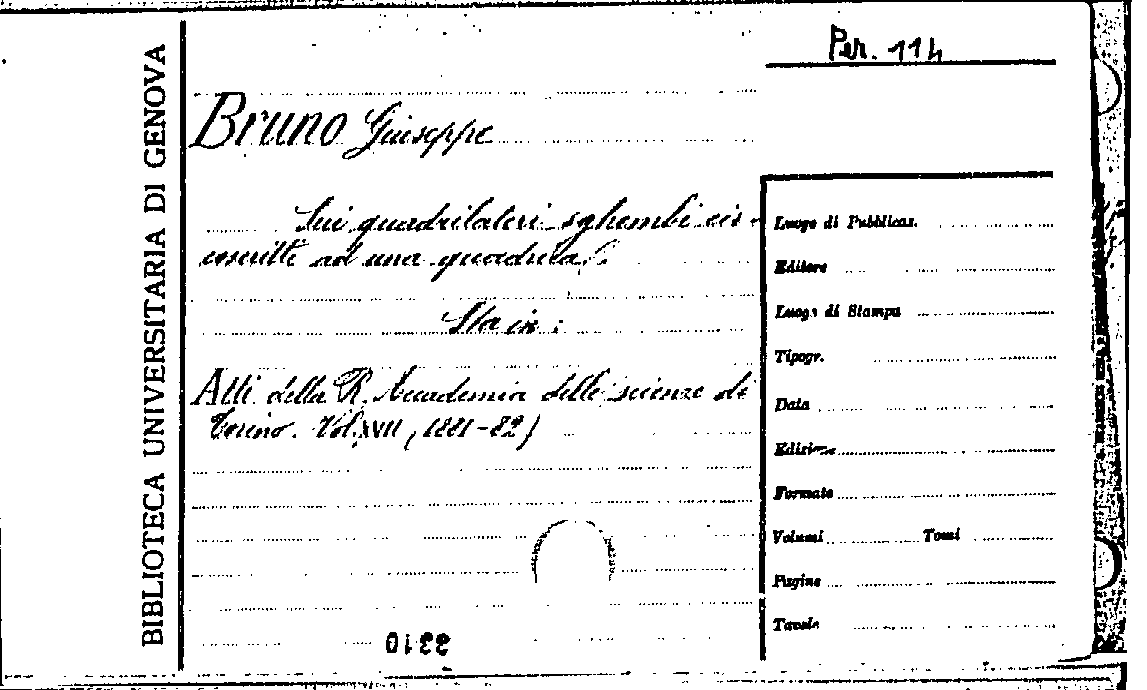 Per. 114
BIBLIOTECA UNIVERSITARIA DI GENOVA
Bruno Giuseppe
Sui quadrilateri sghembi cir-
coscritti ad una quadrica.
Sta in:
Atti della R. Accademia delle scienze di
Torino. Vol. XVII (1881-82)
Luogo di Pubblicaz.
Editore
Luogo di Stampa
Tipogr.
Data
Edizione
Formato
Volumi Tomi
Pagine
Tavole